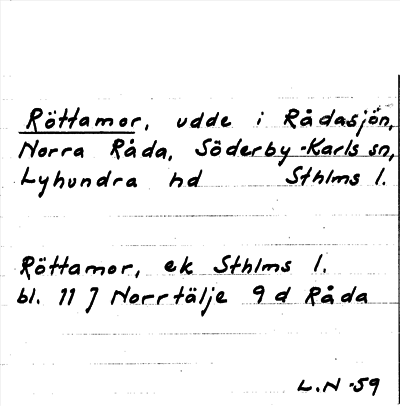 Röttamor, udde i Rådasjön,
Norra Råda, Söderby-Karls sn,
Lyhundra hd Sthlms l.
Röttamor, ek Sthlms l.
bl. 11 J Norrtälje 9 d Råda
L.N -59